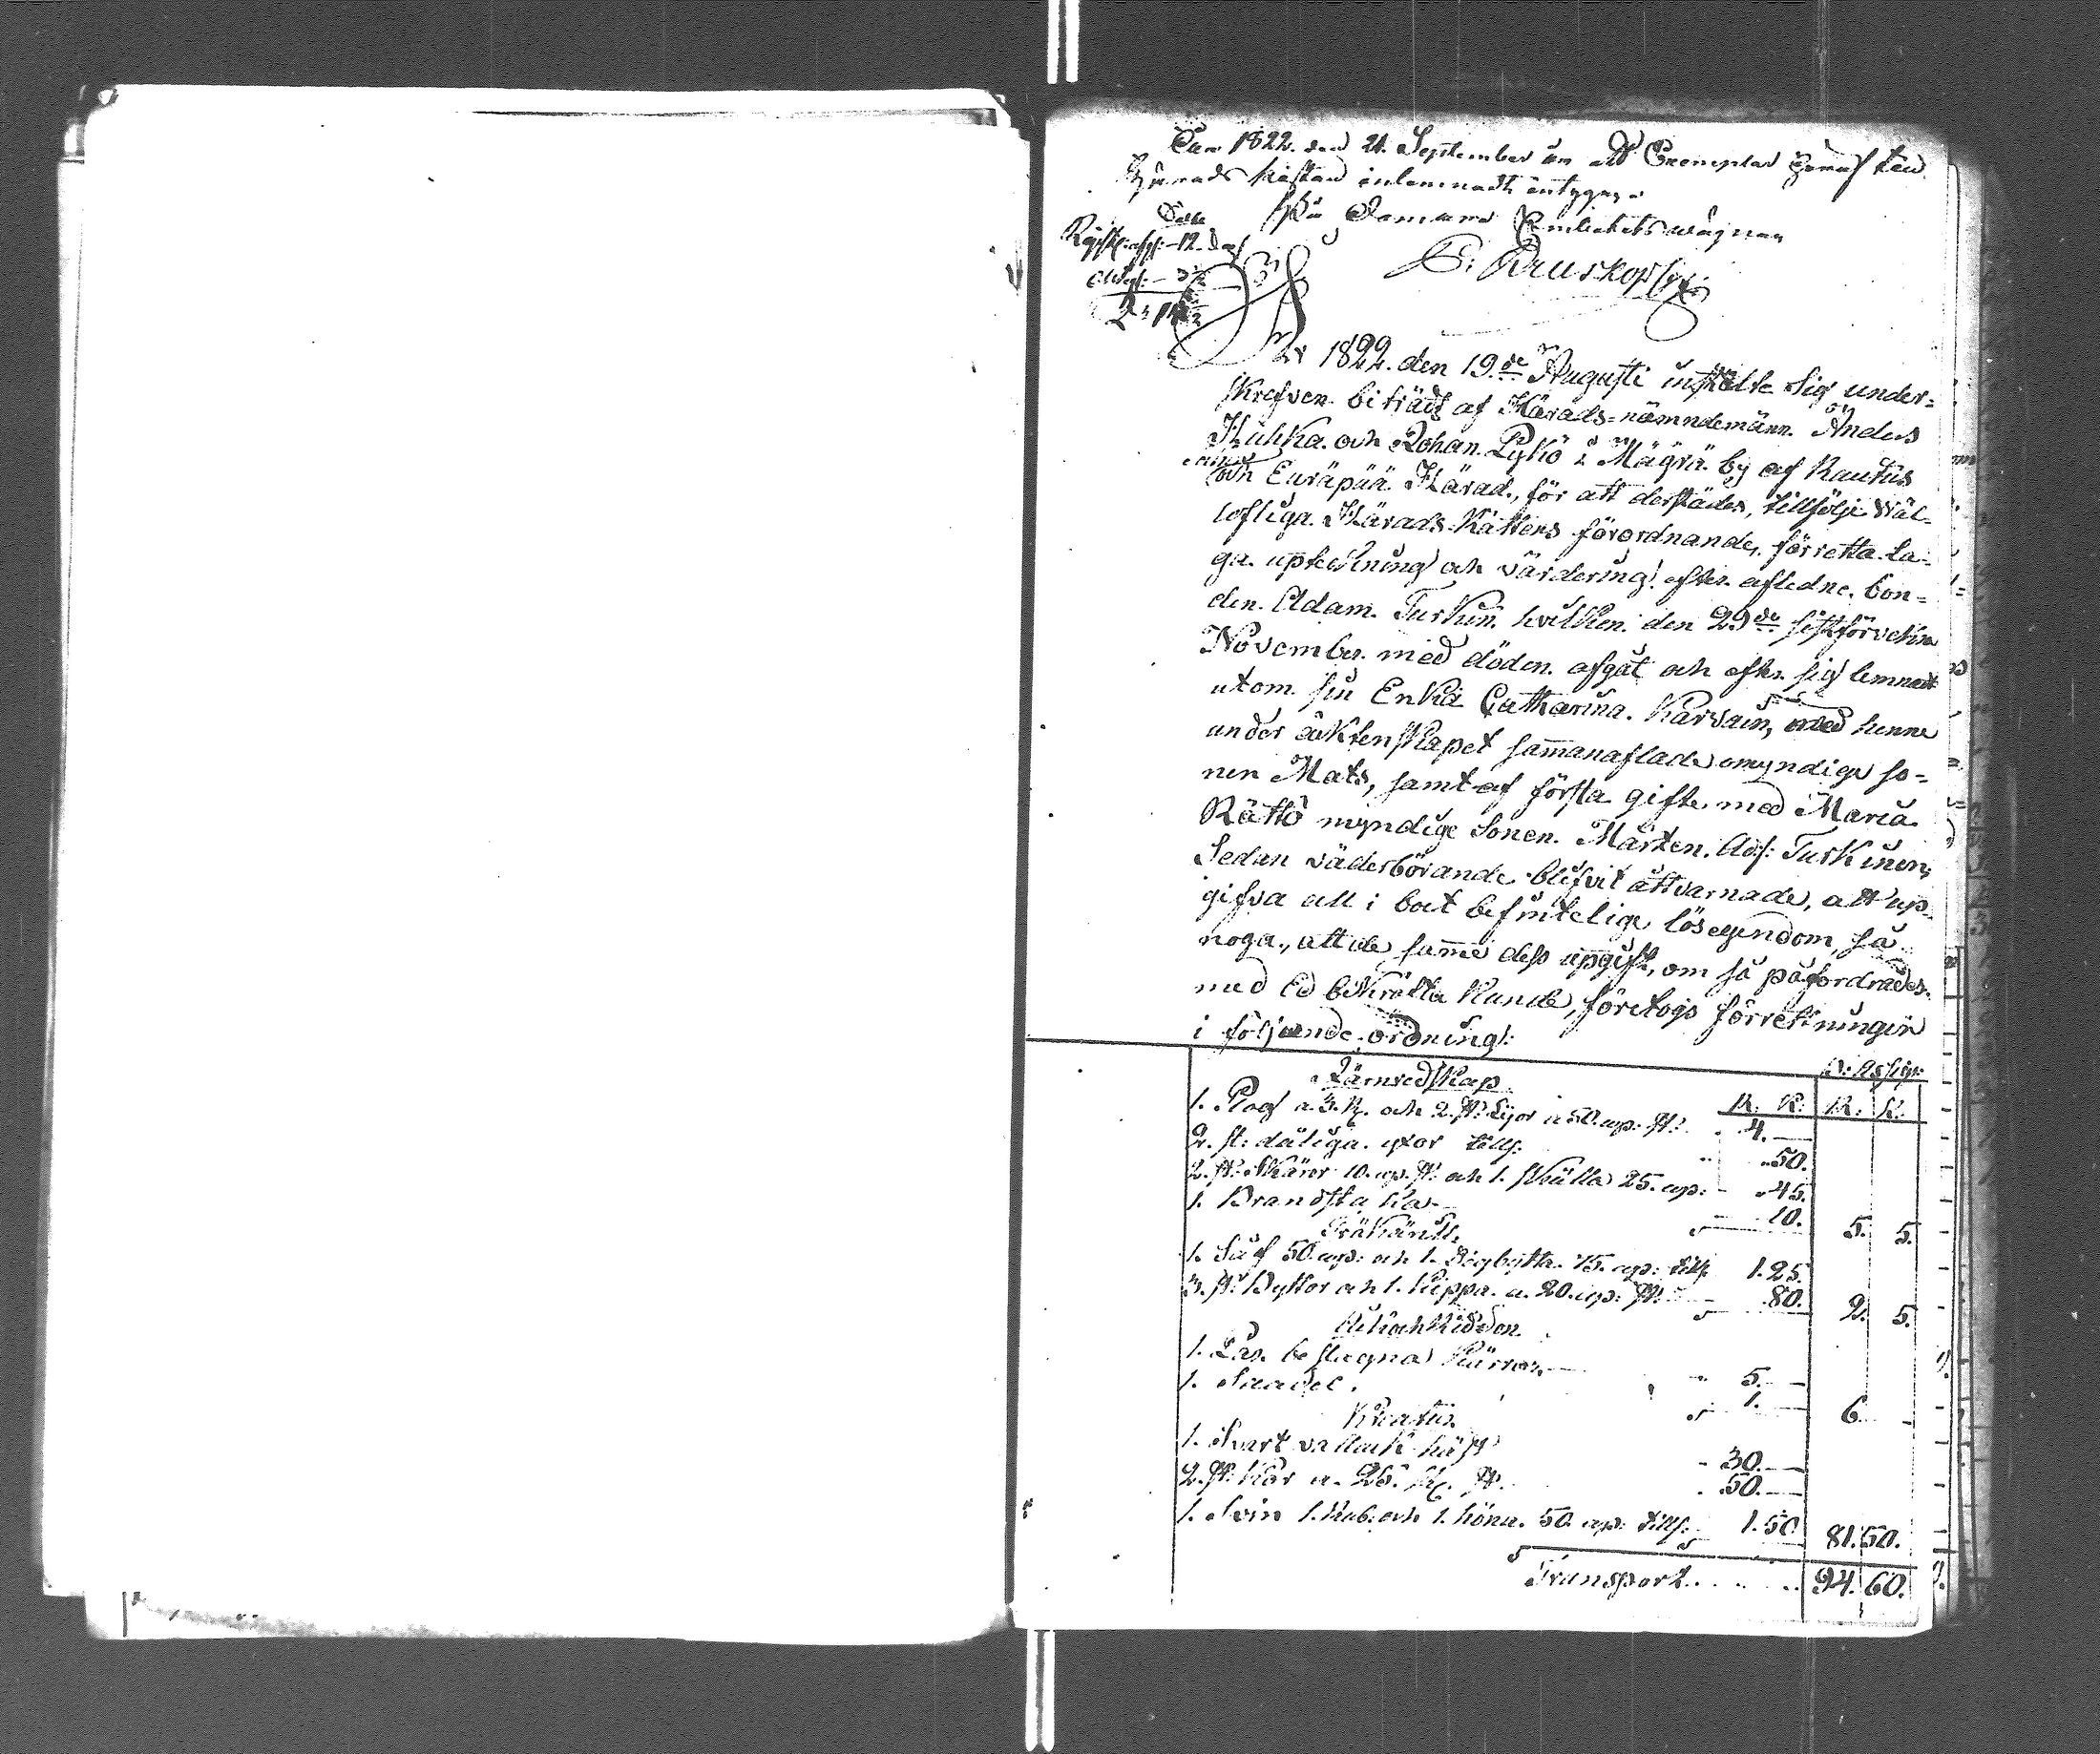 1822. den 21. September Exemplar häraf
Härads kistan inlemnadt intygar
På Domare Embetets wägnar
Kruskopf
År 1822. den 19de Augusti instälte sig under=
skrefven biträdd af Härads=nämndemänn. Anders
Kukka. och Johan. Pykö i Mägrä by af Rautus
och Euräpää Härad, för att derstädes, tillfölje Väl=
lofliga. Härads Rättens förordnande, förretta la=
ga. upteckning och värdering efter afledne. bon=
den. Adam. Turkin. hvilken. den 29de sistförvekne
November. med döden. afgåt och efter sig lemnat
utom sin Enka Catharina. Karvain, med henne
under äcktenskapet sammanaflade omyndige so=
nen Mats, samt af första gifte med Maria
Rättö myndige Sonen. Mårten. Ads: Turkinen,
Sedan väderbörande blifvit åttvarnade, att up=
gifva all i boet befintelige lösegendom, så
noga, att de samme dess upgift, om så påfordrades.
med Ed bekräfta kunde, företogs förrettningen
i följande ordning:
Järnredskap. B: Assign:
R. K. R. K.
1. Plog a 3. R. och 2. st: Lijor a 50. cop. st: 4. —
2. st: dåliga. yxor tills: 50.
2. st: Skäror 10. cop. st: och 1. skälla 25. cop: 45.
1. Brandstaka 10. 5. 5.
Träkäril.
1. Så 50. cop: och 1. Degbytta. 75. cop: tills 1. 25.
3. st: Byttor och 1. kippa. a. 20. cop: st: 80. 2. 5.
Åk och Ridedon
1. Par. beslagna Kärror 5. —
1. Saadel. 1. — 6. —
Kreatur.
1. Svart vallack häst 30. —
2. st: Kor a. 25. R. st. 50. —
1. Svin 1. Rub: och 1. höna. 50. cop: tills: 1. 50 81. 50.
Transport. 94. 60.